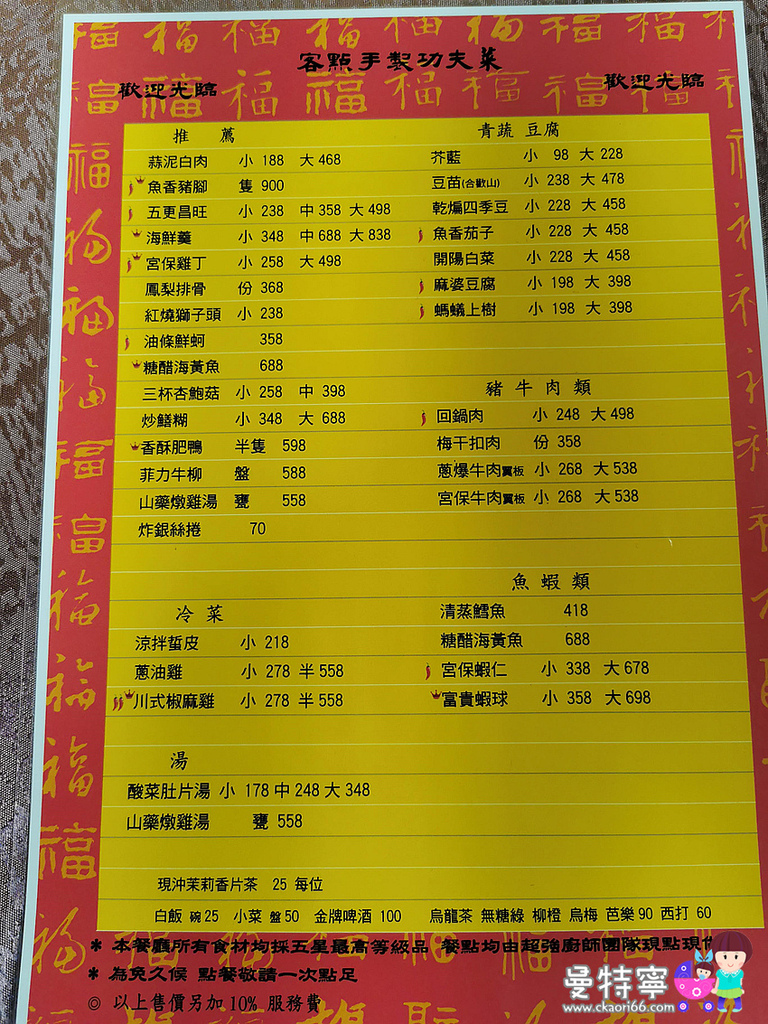 客點手製功夫菜
歡迎光臨
歡迎光臨
推薦
蒜泥白肉 小 188 大 468
魚香豬腳 隻 900
五更昌旺 小 238 中 358 大 498
海鮮羹 小 348 中 688 大 838
宮保雞丁 小 258 大 498
鳳梨排骨 份 368
紅燒獅子頭 小 238
油條鮮蚵 358
糖醋海黃魚 688
三杯杏鮑菇 小 258 中 398
炒鱔糊 小 348 大 688
香酥肥鴨 半隻 598
菲力牛柳 盤 588
山藥燉雞湯 甕 558
炸銀絲捲 70
冷菜
涼拌蜇皮 小 218
蔥油雞 小 278 半 558
川式椒麻雞 小 278 半 558
湯
酸菜肚片湯 小 178 中 248 大 348
山藥燉雞湯 甕 558
青蔬 豆腐
芥藍 小 98 大 228
豆苗(合歡山) 小 238 大 478
乾煸四季豆 小 228 大 458
魚香茄子 小 228 大 458
開陽白菜 小 228 大 458
麻婆豆腐 小 198 大 398
螞蟻上樹 小 198 大 398
豬牛肉類
回鍋肉 小 248 大 498
梅干扣肉 份 358
蔥爆牛肉翼板 小 268 大 538
宮保牛肉翼板 小 268 大 538
魚蝦類
清蒸鱈魚 418
糖醋海黃魚 688
宮保蝦仁 小 338 大 678
富貴蝦球 小 358 大 698
現沖茉莉香片茶 25 每位
白飯 碗 25 小菜 盤 50 金牌啤酒 100 烏龍茶 無糖綠 柳橙 烏梅 芭樂 90 西打 60
* 本餐廳所有食材均採五星最高等級品 餐點均由超強廚師團隊現點現
* 為免久候 點餐敬請一次點足
◎ 以上售價另加 10% 服務費
曼特寧
www.ckaori66.com